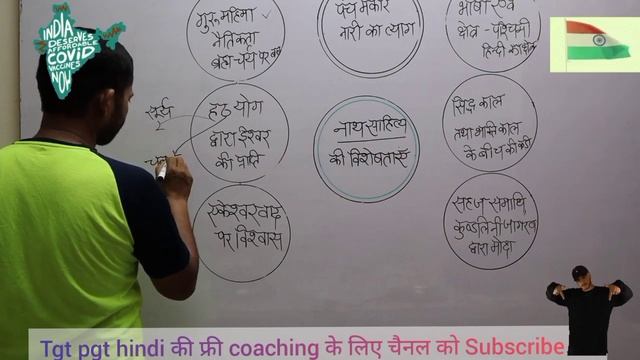 INDIA
DESERVES
AFFORDABLE
COVID
VACCINES
NOW
गुरु महिमा
नैतिकता
ब्रह्मचर्य पर बल
पंच मकार
नारी का त्याग
भाषा
क्षेत्र - पश्चिमी
हिन्दी का क्षेत्र
सूर्य
हठ योग
द्वारा ईश्वर
की प्राप्ति
नाथ साहित्य
की विशेषताएँ
सिद्ध काल
तथा भक्ति काल
के बीच की कड़ी
एकेश्वरवाद
पर विश्वास
सहज समाधि
कुण्डलिनी जागरण
द्वारा मोक्ष
Tgt pgt hindi की फ्री coaching के लिए चैनल को Subscribe